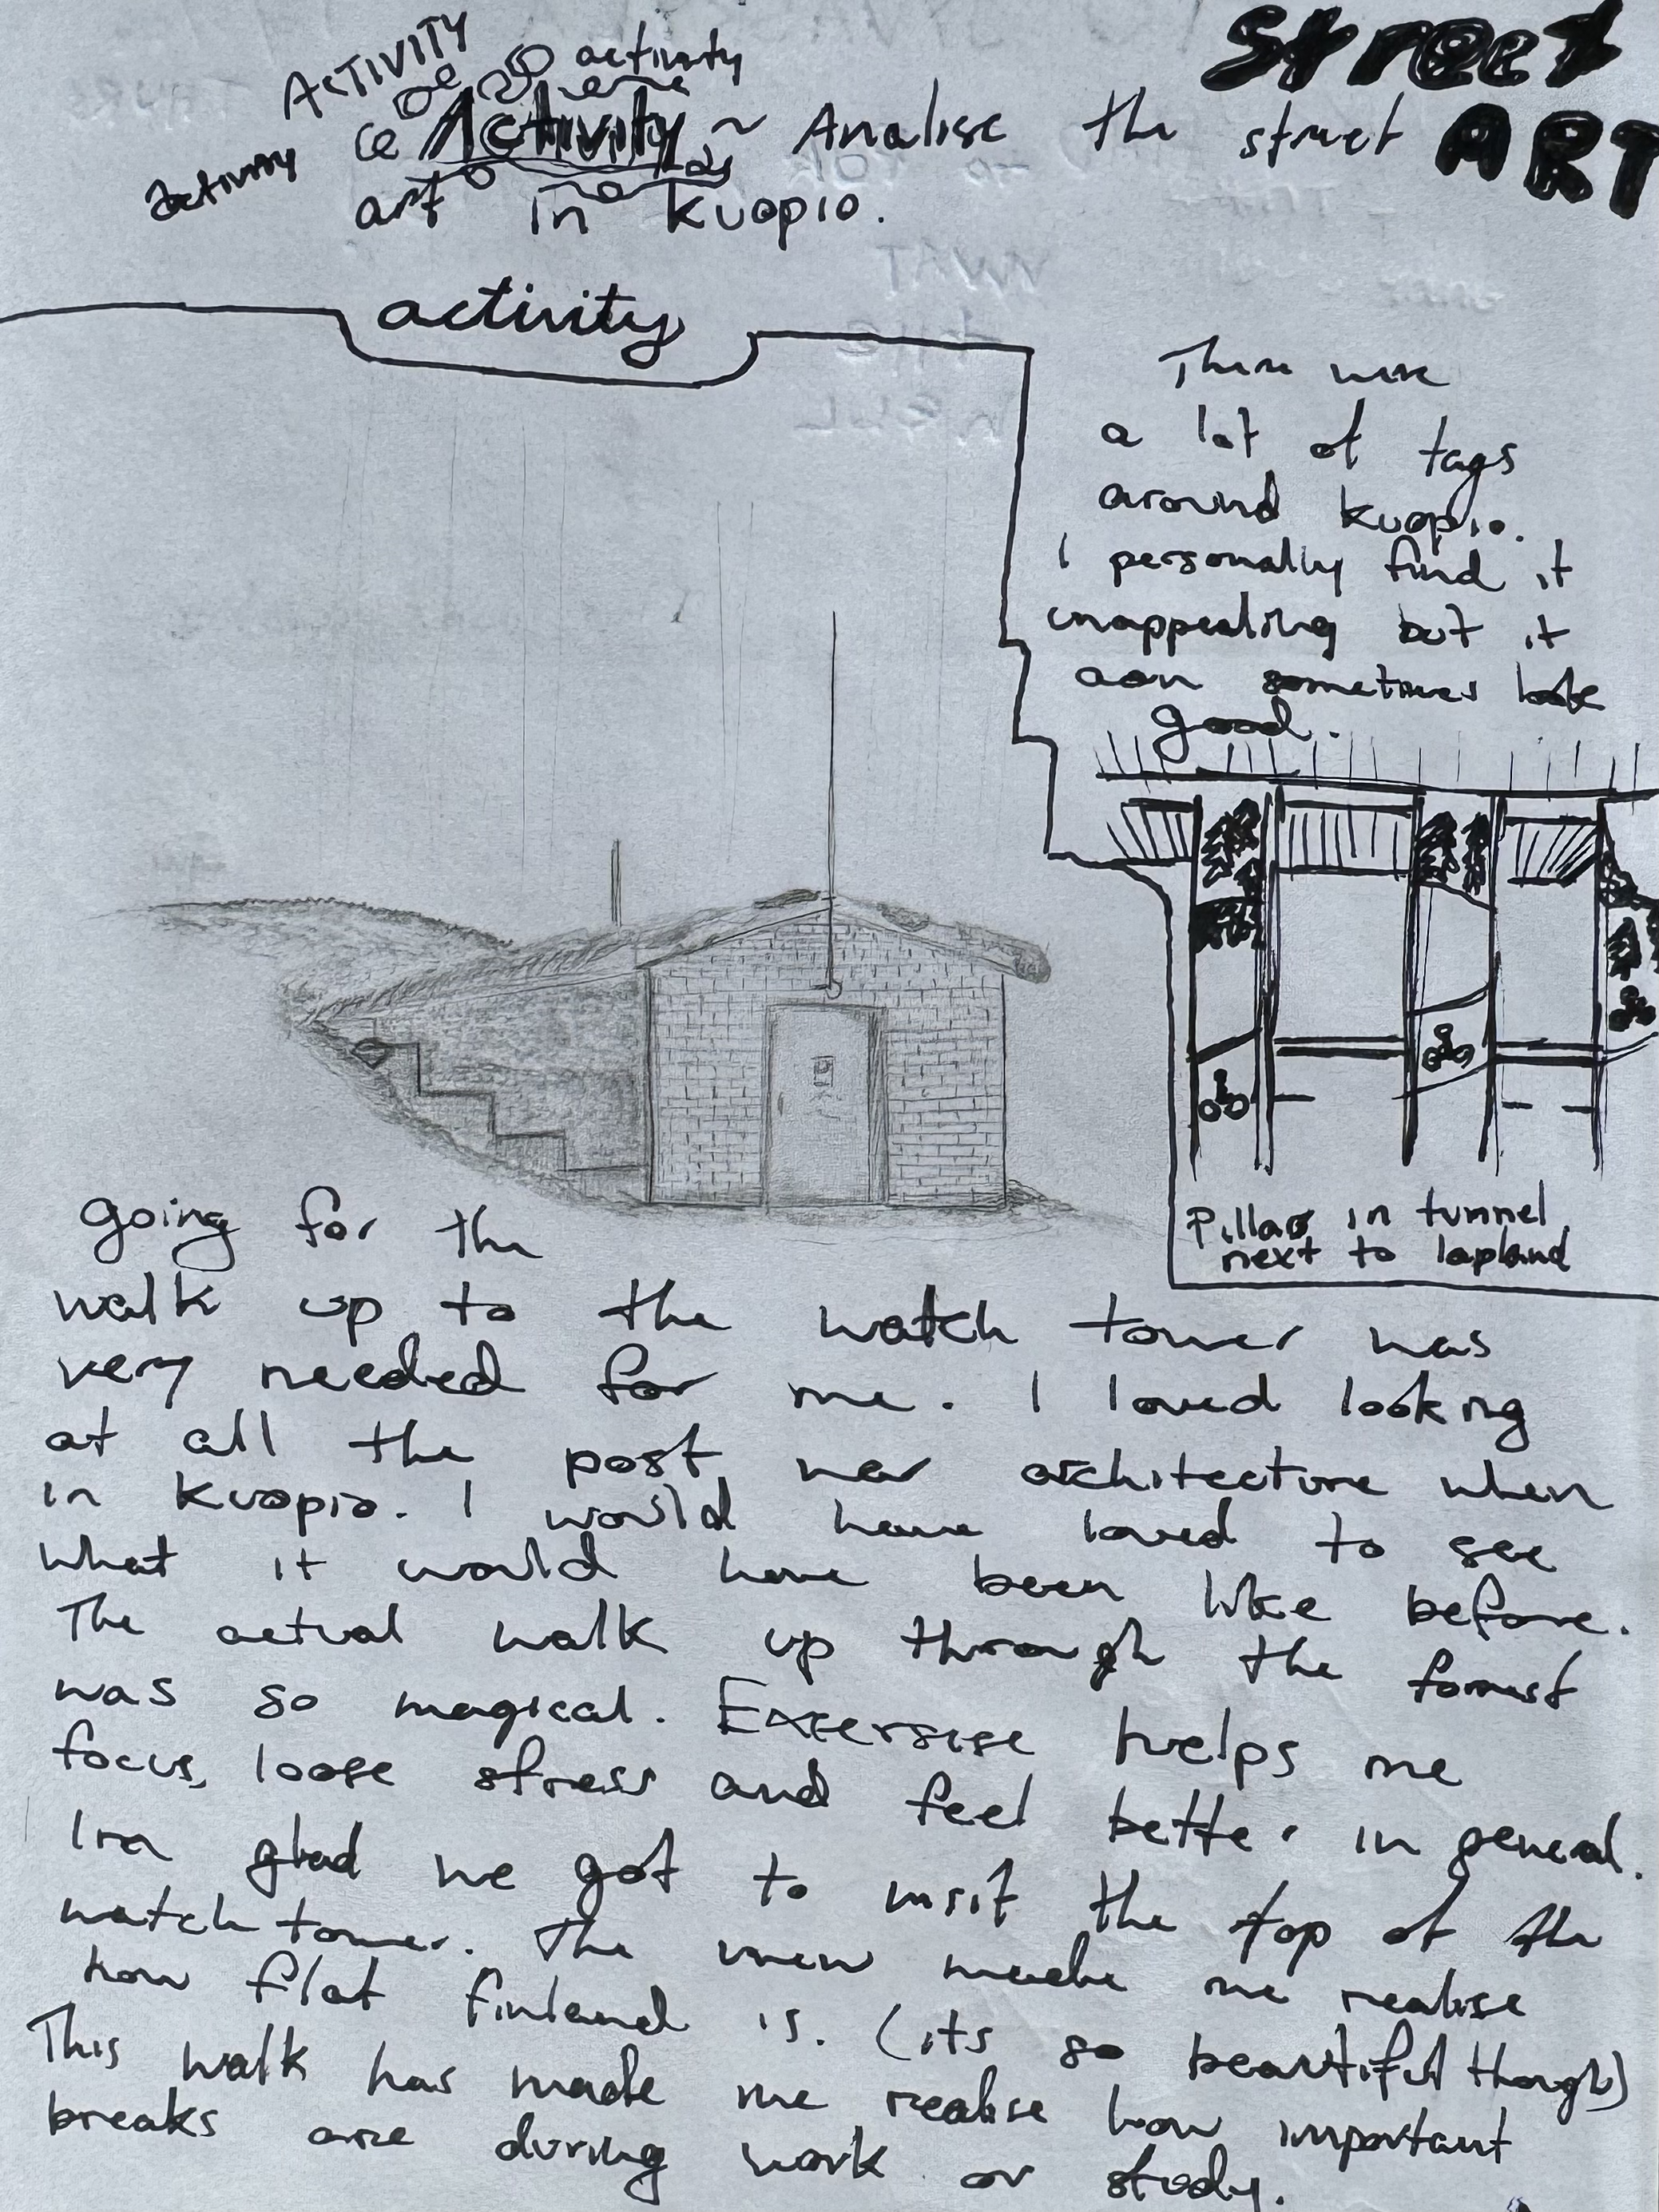 Street
ART
ACTIVITY
activity
activity
Activity ~ Analise the street
art in Kuopio.
activity
There were
a lot of tags
around Kuopio.
I personally find it
unappealing but it
can sometimes look
good.
Pillars in tunnel
next to lapland
going for the
walk up to the watch tower was
very needed for me. I loved looking
at all the post war architecture when
in Kuopio. I would have loved to see
what it would have been like before.
The actual walk up through the forrest
was so magical. Excersise helps me
focus, loose stress and feel better in general.
Im glad we got to visit the top of the
watch tower. The view made me realise
how flat finland is. (its so beautiful though)
This walk has made me realise how important
breaks are during work or study.